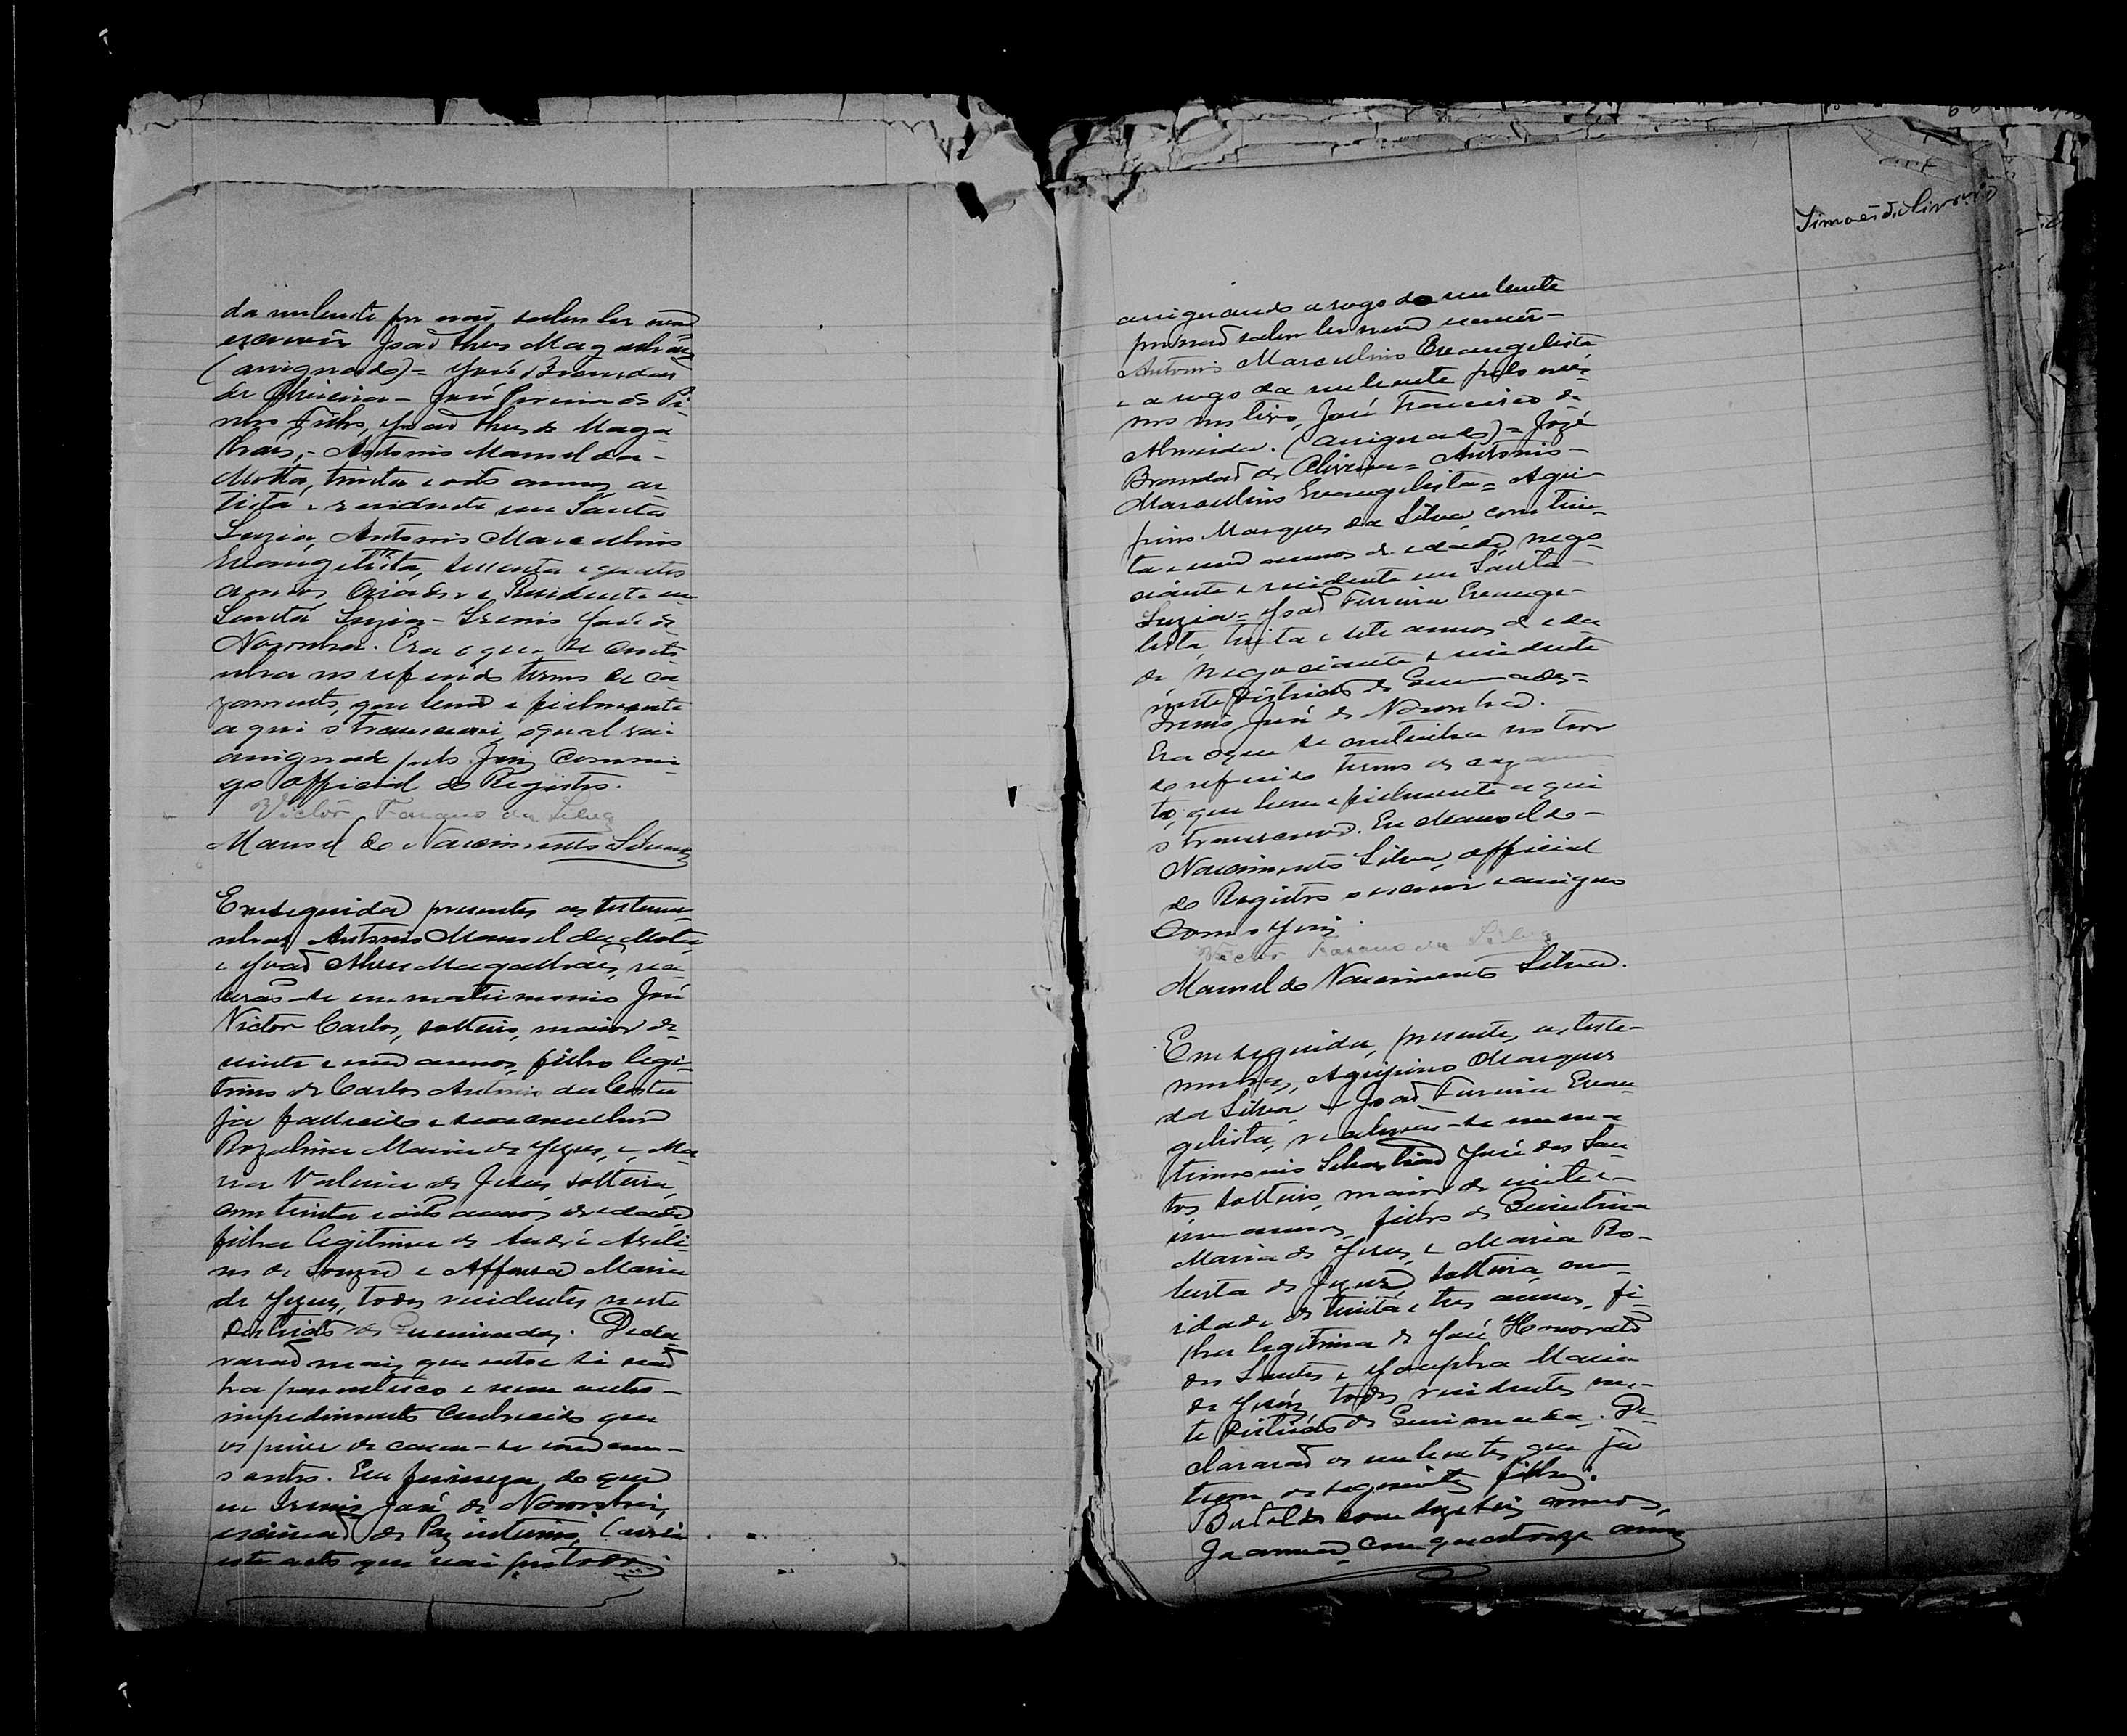 da nubente por não saber ler nem
escrever João Alves Magalhães
(assignado) = José Brandão
de Oliveira - José Pereira de Pi-
nho Filho, João Alves de Maga-
lhães, - Antonio Manoel da -
Motta, trinta e oito annos ar-
tista e residente em Santa
Luzia, Antonio Marculino
Evangelista, sessenta e quatro
annos, Criador e Residente em
Santa Luzia - Irenio José de
Noronha. Era o que se conti-
nha no referido termo de ca-
zamento, que bem e fielmente
aqui o transcrevi, o qual vai
assignado pelo Juiz commi-
go official do Registro.
Victor da Silva
Manoel do Nascimento Silva
Em seguida presentes as testemu-
nhas Antonio Manoel da Motta
e João Alves Magalhães, rea-
lizão-se em matrimonio José
Victor Carlos, solteiro, maior de
vinte e um annos, filho legi-
timo de Carlos Antonio da Costa
já fallecido e sua mulher
Rozalina Maria de Jezus, e Ma-
ria Valeria de Jesus, solteira,
com trinta e oito annos de edade,
filha legitima de André Aveli-
no de Souza e Affonsa Maria
de Jezus, todos residentes neste
Districto de Queimadas. Decla-
rarão mais que entre si não
ha parentesco e nem outro -
impedimento conhecido que
os prive de casar-se um com -
o outro. Em firmeza do que
eu Irenio José de Noronha,
escrivão de Paz interino, lavrei
este acto que vai por todos
Simões de Oliveira
assignando a rogo do nubente
por não saber ler nem escrever -
Antonio Marculino Evangelista
e a rogo da nubente pelo mes-
mo motivo, José Francisco de
Almeida. (assignado) = José
Brandão de Oliveira = Antonio -
Marculino Evangelista = Agri-
pino Marques da Silva, com trin-
ta e um annos de edade, nego-
ciante e residente em Santa -
Luzia = João Ferreira Evange-
lista, trinta e sete annos de eda-
de, negociante e residente
neste Districto de Queimadas =
Irenio José de Noronha.
Era o que se continha no teor
do referido termo de cazamen-
to, que bem e fielmente aqui
o transcrevo. Eu Manoel do -
Nascimento Silva, official
do Registro o escrevi e assigno
com o Juiz.
Victor da Silva
Manoel do Nascimento Silva.
Em seguida, presentes, as teste-
munhas, Agripino Marques
da Silva e João Ferreira Evan-
gelista, realizão-se em ma-
trimonio Sebastião José dos San-
tos, solteiro, maior de vinte e -
um annos, filho de Quintina
Maria de Jesus, e Maria Ro-
berta de Jezus, solteira, com -
idade de trinta e tres annos, fi-
lha legitima de José Honorato
dos Santos e Josepha Maria
de Jesus, todos residentes nes-
te Districto de Queimadas. De-
clararão os nubentes, que já
tem os seguintes filhos:
Bertoldo com dezeseis annos,
Joanna, com quatorze annos